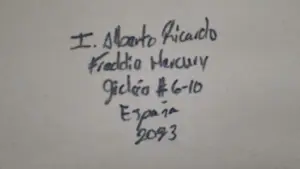 I. Alberto Ricardo
Freddie Mercury
#6-10
España
2093